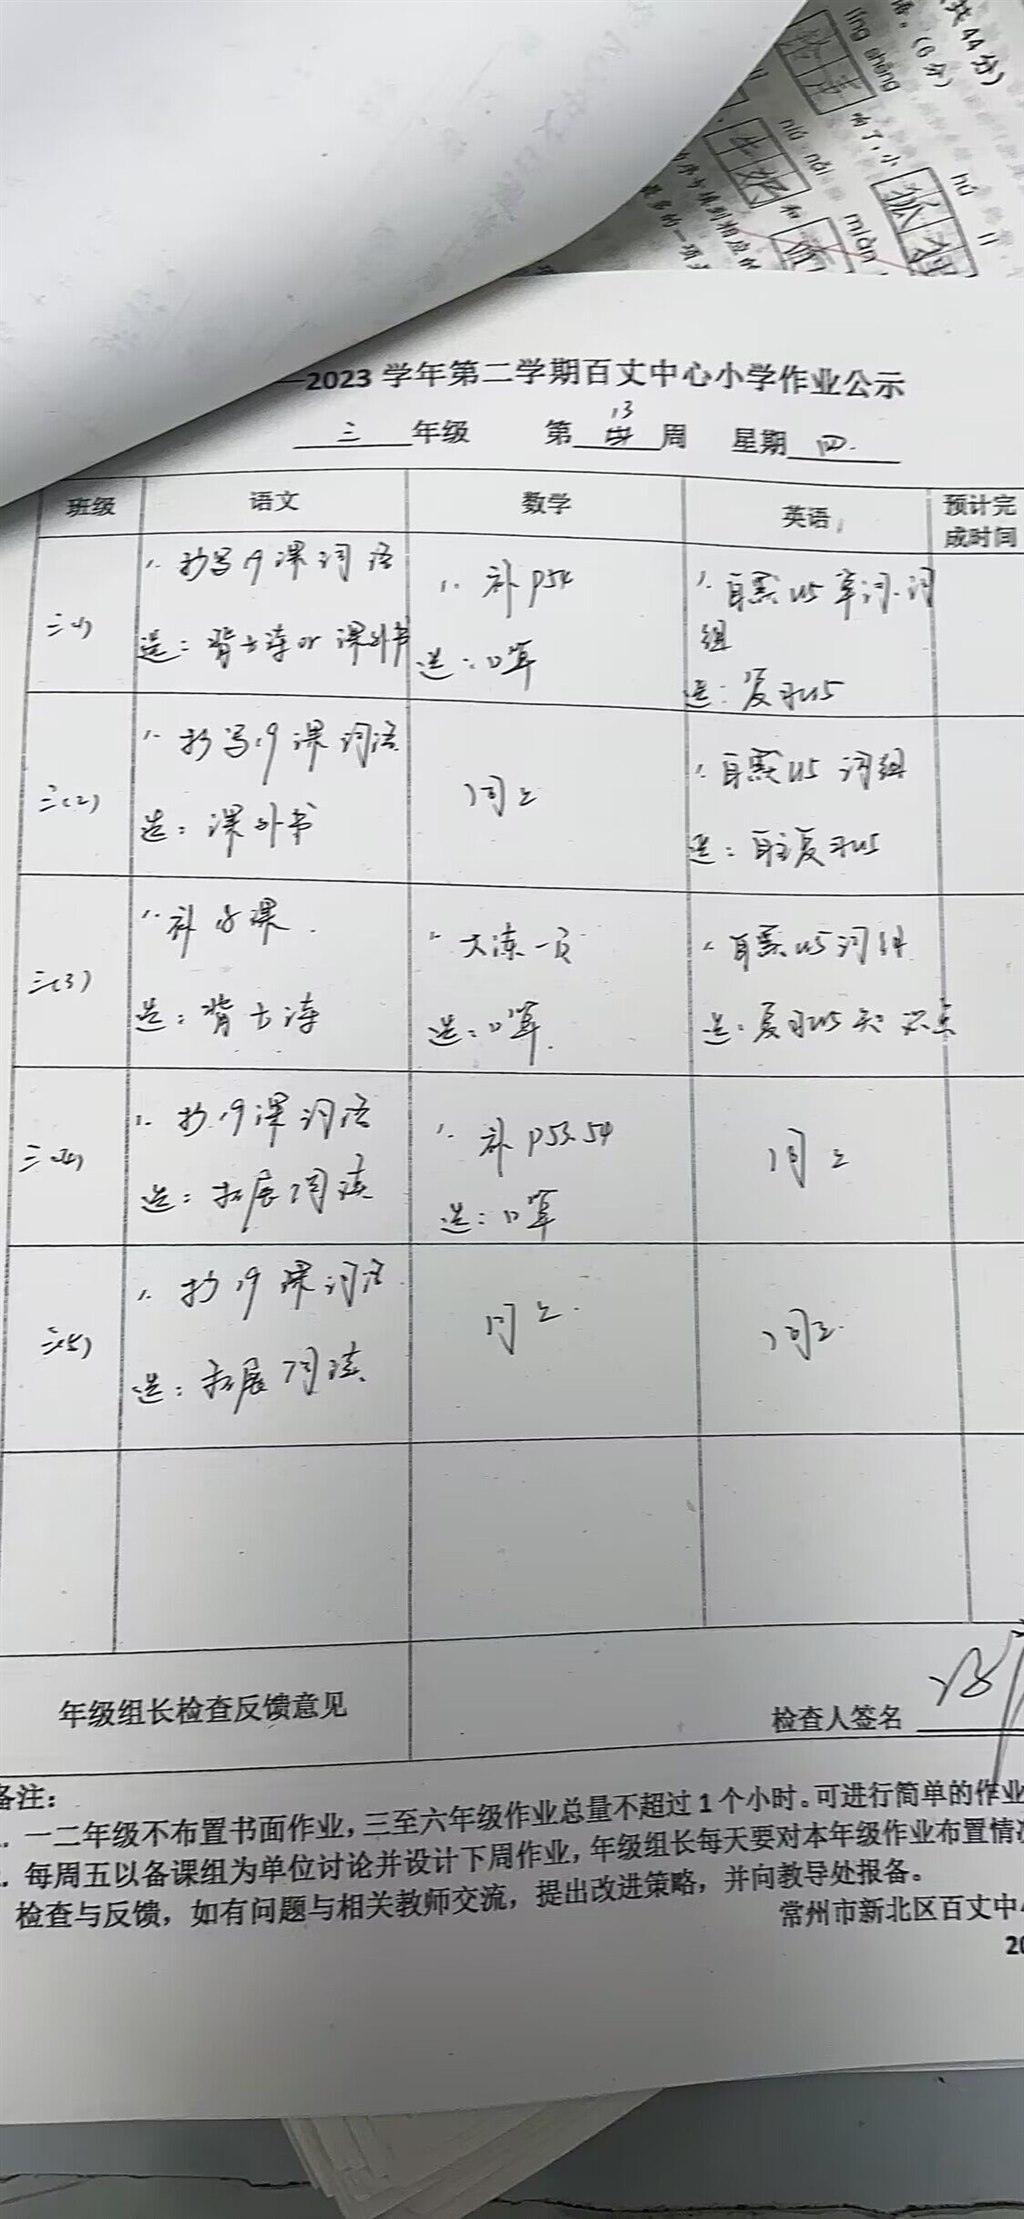 共44分)
语。(6分)
líng shēng
铃声 响了,小
hú li
狐狸
niú nǎi
牛奶 和
miàn
—2023学年第二学期百丈中心小学作业公示
三 年级 第 13 周 星期 四.
班级 语文 数学 英语 预计完成时间
三(1)
1. 抄写19课词语
选: 背古诗or课外书
1. 补P54
选: 口算
1. 自默U5单词.词
组
选: 复习U5
三(2)
1. 抄写19课词语
选: 课外书
同上
1. 自默U5 词组
选: 自主复习U5
三(3)
1. 补18课.
选: 背古诗
1. 大练一页
选: 口算.
1. 自默U5词组
选: 复习U5知识点
三(4)
1. 抄19课词语
选: 拓展阅读
1. 补P53.54
选: 口算
同上
三(5)
1. 抄19课词语
选: 拓展阅读
同上.
同上.
年级组长检查反馈意见 检查人签名
备注:
一二年级不布置书面作业,三至六年级作业总量不超过1个小时。可进行简单的作业
每周五以备课组为单位讨论并设计下周作业,年级组长每天要对本年级作业布置情况
检查与反馈,如有问题与相关教师交流,提出改进策略,并向教导处报备。
常州市新北区百丈中心
20